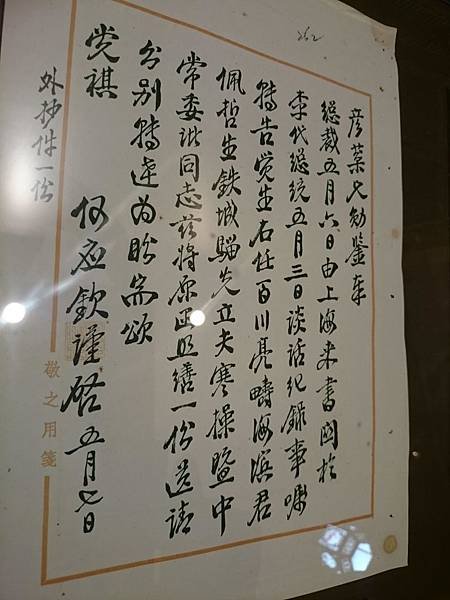 262
彦棻兄勛鑒奉
總裁五月六日由上海来書関於
李代總統五月三日談話纪錄事嘱
轉告觉生右任百川亮疇海濱君
佩哲生鉄城騮先立夫寒操暨中
常委諸同志兹將原函照繕一份送請
分别轉達為盼耑頌
党祺
何应欽謹啓 五月七日
外抄件一份
敬之用箋